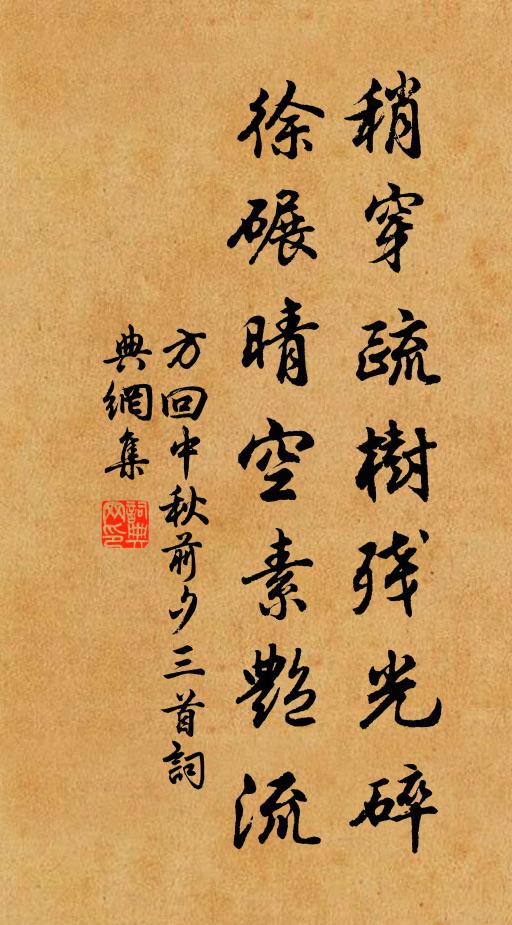 稍穿疏樹残光碎
徐碾晴空素艷流
方回中秋前夕三首詞
典網集
詞典
网印